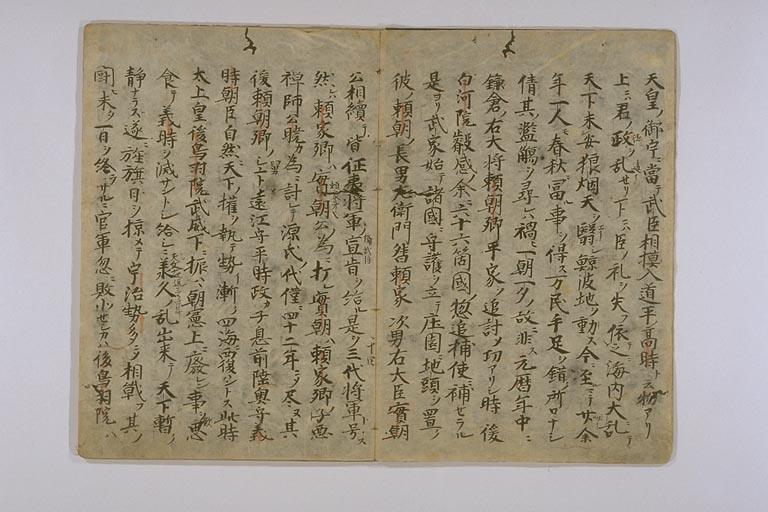 天皇ノ御宇ニ當テ武臣相摸入道平高時ト云物アリ
上ニハ君ノ政シ乱セリ下ニハ臣ノ礼シ失フ依之海内大乱
天下未安狼烟天シ翳シ鯨波地シ動ス今ニ至テ廿余
年一人モ春秋ニ冨ル事シ得ス万民手足シ錯ニ所ロナシ
倩其濫觴シ尋レハ禍一朝一夕ノ故ニ非ス元暦年中ニ
鎌倉ノ右大将頼朝卿平家シ追討メ功アリシ時後
白河院叡感ノ余ニ六十六箇國ノ惣追補使ニ補セラル
是ヨリ武家始テ諸國ニ守護シ立テ庄園ニ地頭シ置ク
彼ノ頼朝ノ長男左衛門督頼家次男右大臣實朝
公相續テ皆征夷将軍ノ宣旨シ給ル是シ三代将軍ト号ス
然ニ頼家卿ハ實朝公ノ為ニ打レ實朝ハ頼家卿ノ子悪
禅師公暁カ為ニ討レテ源氏ノ代僅ニ四十二年ニシテ尽ヌ其
後頼朝卿ノシウト遠江守平時政カ子息前陸奥守義
時朝臣自然ニ天下ノ權シ執テ勢漸ク四海ニ覆ントス此時
太上皇後鳥羽院武威下ニ振ハ朝憲上ニ廢レン事シ思
食テ義時シ滅サントシ給シニ義久ノ乱出来テ天下暫ク
静ナラス遂ニ旌旗日シ掠メテ宇治勢多ニテ相戦フ其ノ
闘未タ一日シ終サルニ官軍忽ニ敗北セシカハ後鳥羽院ハ